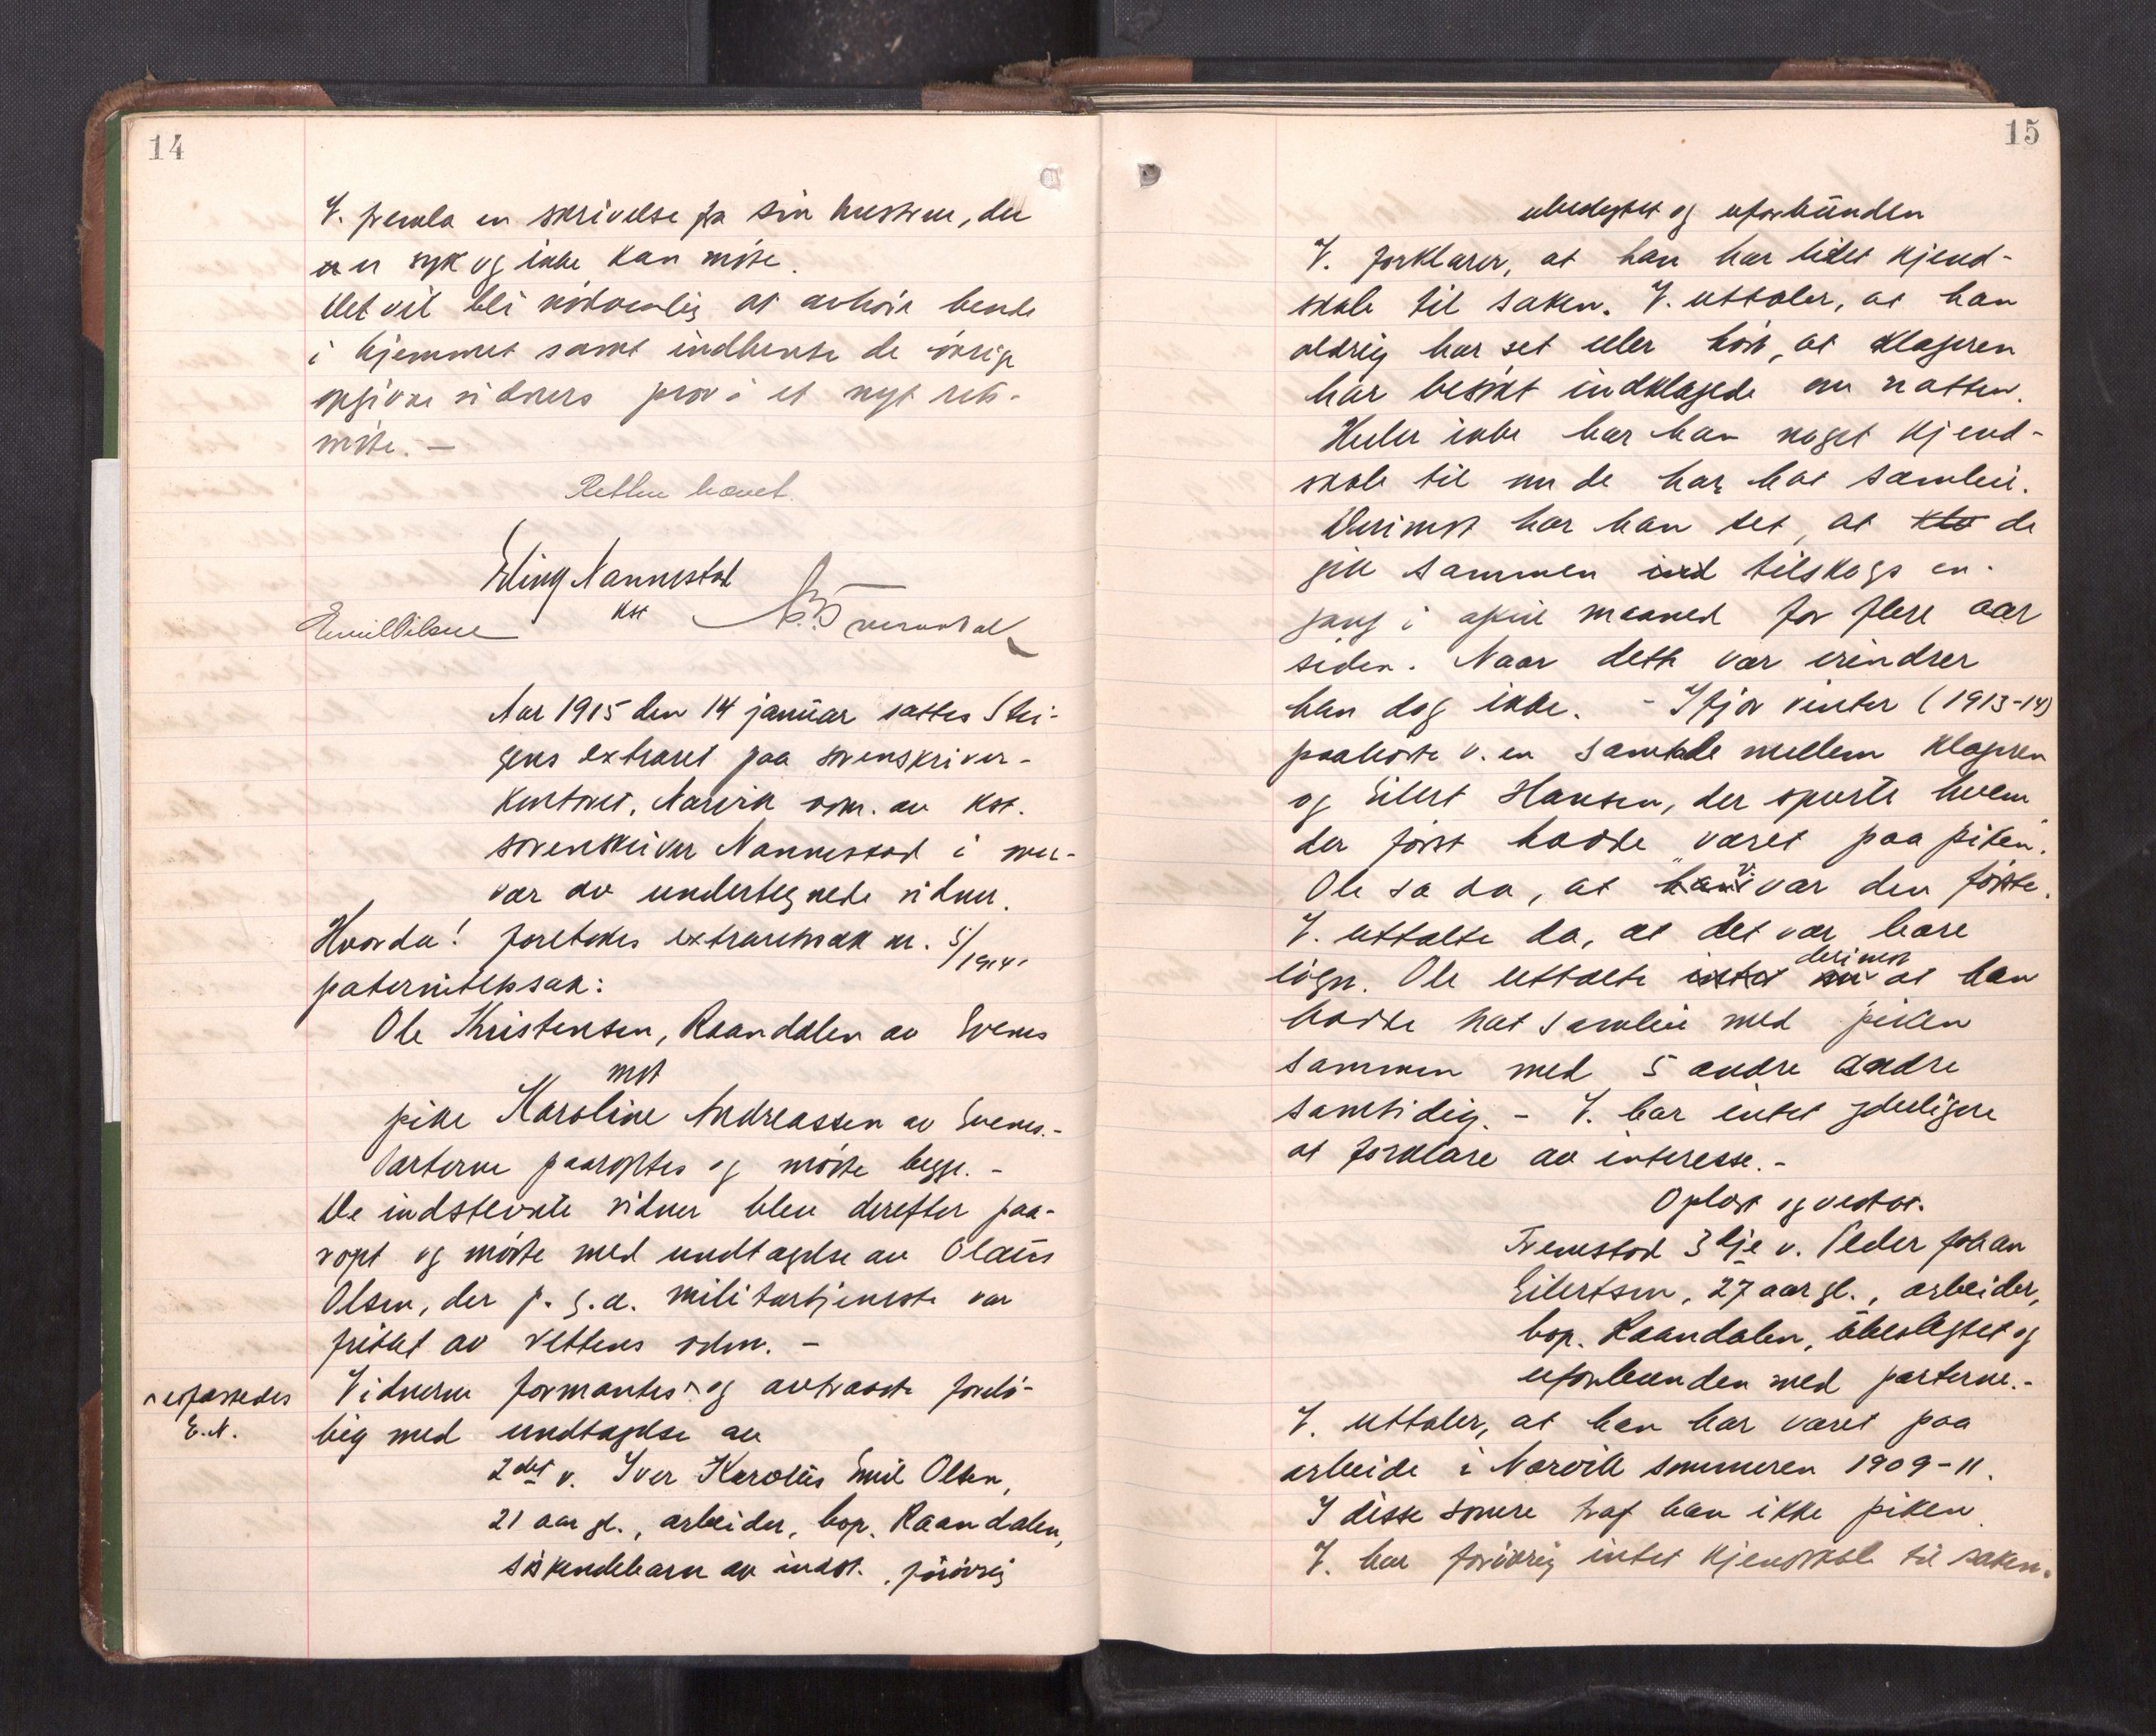 14
V. fremla en skrivelse fra sin hustrue, der
er syk og ikke kan möte.
Det vil bli nödvendig at avhöre hende
i hjemmet samt indhente de övrige
opgivne vidners prov i et nyt rets-
möte. –
Retten hævet.
Erling Nannestad
kst
Emil Nilsen
Aar 1915 den 14 januar sattes Stei-
gens extraret paa sorenskriver-
kontoret, Narvik adm. av kst.
sorenskriver Nannestad i over-
vær av undertegnede vidner.
Hvorda! foretokes extraretssak nr. 5/1914.
paternitetssak:
Ole Kristensen, Raandalen av Evenes
mot
pike Karoline Andreassen av Evenes. -
Parterne paaroptes og mötte begge. -
De indstevnte vidner blev derefter paa-
ropt og mötte med undtagelse av Olaus
Olsen, der p. g. a. militærtjeneste var
fritat av rettens adm. -
Vidnerne formantes ^ og avtraadte forelö-
^ erfarredes
E.N.
big med undtagelse av
2det v. Iver Karolus Emil Olsen,
21 aar gl., arbeider, bop. Raandalen,
söskendebarn av indst. forövrig
15
ubeslegtet og uforbunden
V. forklarer, at han har litet kjend-
skab til saken. V. uttaler, at han
aldrig har set eller hört, at klageren
har besökt indklagede om natten.
Heller ikke har han noget kjend-
skab til om de har hat samleie.
Derimot har han set, at de
gik sammen tilskogs en-
gang i april maaned for flere aar
siden. Naar dette var erindrer
han dog ikke. - Ifjor vinter (1913-14)
paahörte v. en samtale mellem klageren
og Eilert Hansen, der spurte hvem
der först hadde "været paa piken".
Ole sa da, at han var den förste.
V. uttalte da, at det var bare
lögn. Ole uttalte derimot at han
hadde hat samleie med piken
sammen med 5 andre andre
samtidig. - V. har intet yderligere
at forklare av interesse. -
Oplæst og vedtat.
Fremstod 3dje v. Peder Johan
Eilertsen, 27 aar gl., arbeider,
bop. Raandalen, ubeslegtet og
uforbunden med parterne. -
V. uttaler, at han har været paa
arbeide i Narvik sommeren 1909-11.
I disse somre traf han ikke piken.
V. har forövrig intet kjendskab til saken.